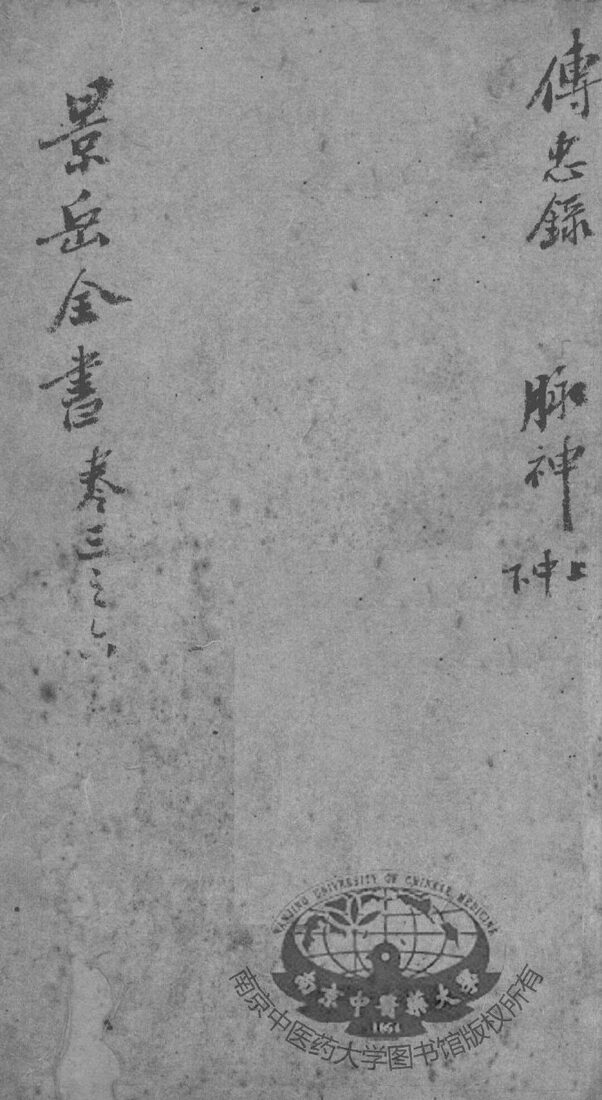 傳忠錄　脉神
上中下
景岳全書 卷三之六
NANJING UNIVERSITY OF CHINESE MEDICINE
南京中醫藥大學
1954
南京中医药大学图书馆版权所有